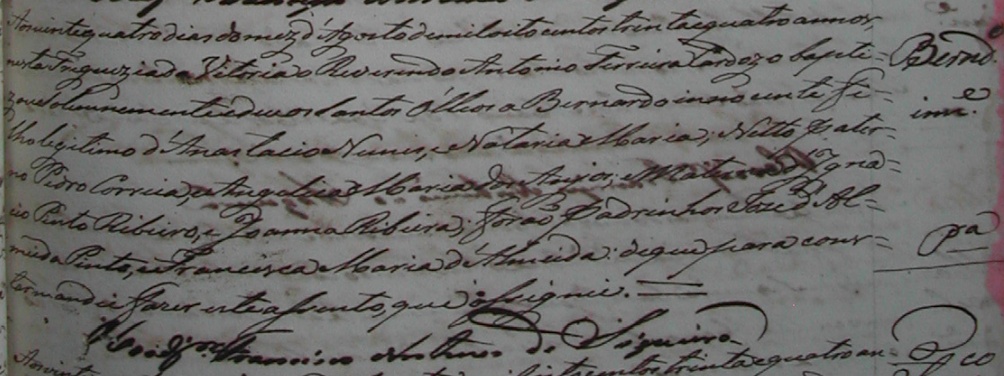 Aos vinte quatro dias do mez d'Agosto de mil oito centos trinta e quatro annos,
nesta Freguezia da Vitoria o Reverendo Antonio Ferreira Cardozo bapti=
Bernd.
zou solemnemente e deu os Santos Olleos a Bernardo innocente fi=
inn.e
lho legitimo d'Anastacio Nunes, e Natária Maria; Netto Pater=
no Pedro Correia, e Angelica Maria dos Anjos, e Materno Igna=
cio Pinto Ribeiro, e Joanna Ribeira; forão Padrinhos Joze d'Al=
meida Pinto, e Francisca Maria d'Almeida: de que para cons=
pa
tar mandei fazer este assento, que assignei.
Francisco de Siqueira
trinta e quatro an